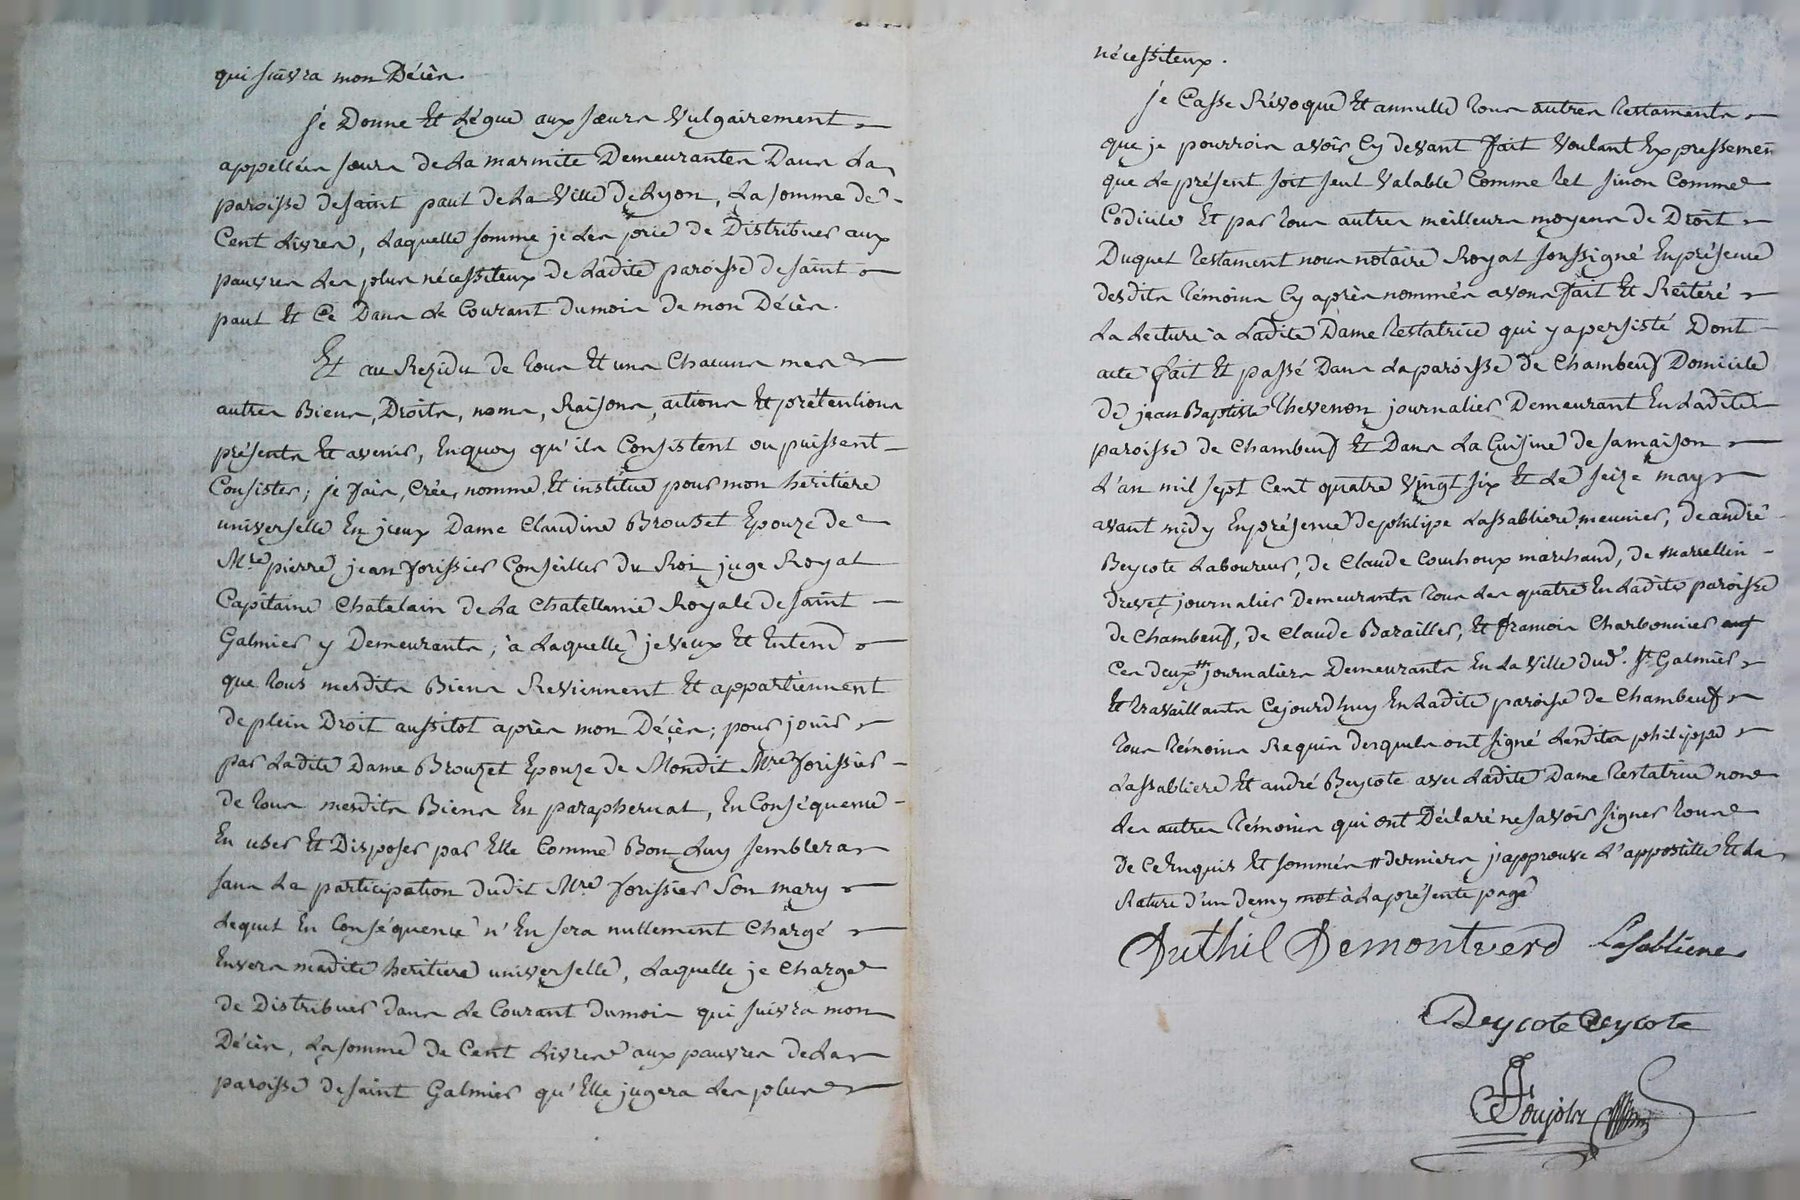 qui suivra mon Décès.
je Donne Et Légue aux sœurs Vulgairement
appellées sœurs de La marmite Demeurantes Dans La
paroisse de saint paul de La Ville de Lyon, La somme de
Cent Livres, Laquelle somme je Les prie de Distribuer aux
pauvres Les plus nécessiteux de Ladite paroisse de saint
paul Et Ce Dans Le Courant du mois de mon Décès.
Et au Rezidu de tous Et uns Chacuns mes
autres Biens, Droits, noms, Raisons, actions Et prétentions
présents Et avenir, En quoy qu'ils Consistent ou puissent
Consister; je fais, Crée, nomme Et institue pour mon héritiere
universelle En jceux Dame Claudine Brouzet Epouze de
Mre pierre jean forissier Conseiller du Roi juge Royal
Capitaine Chatelain de La Chatellenie Royale de saint
Galmier y Demeurants; à Laquelle je veux Et Entend
que tous mesdits Biens Reviennent Et appartiennent
de plein Droit aussitot après mon Décès; pour jouir
par Ladite Dame Brouzet Epouze de Mondit Mre forissier
de tous mesdits Biens En paraphernal, En Conséquence
En user Et Disposer par Elle Comme Bon Luy semblera
sans La participation dudit Mre forissier son mary
Lequel En Conséquence n'En sera nullement Chargé
Envers madite héritiere universelle, Laquelle je Charge
de Distribuer dans Le Courant du mois qui suivra mon
Décès, La somme de Cent Livres aux pauvres de La
paroisse de saint Galmier qu'Elle jugera Les plus
nécessiteux.
je Casse Révoque Et annulle tous autres testaments
que je pourrois avoir Cy devant fait Voulant Expressemen
que Le présent soit seul Valable Comme tel sinon Comme
Codicile Et par tous autres meilleurs moyens de Droit
Duquel testament nous notaire Royal soussigné En présence
desdits témoins Cy après nommés avons fait Et Réitéré
La Lecture à Ladite Dame testatrice qui y a persisté Dont
acte fait Et passé Dans La paroisse de Chambeuf Domicile
de jean Baptiste Thevenon journalier Demeurant En Ladite
paroisse de Chambeuf Et Dans La Cuisine de sa maison
L'an mil sept Cent quatre Vingt six Et Le seize may
avant midy En présence de philipe Lassabliere meunier, de andré
Beycote Laboureur, de Claude Couhoux marchand, de marcellin
drevet journalier Demeurants tous Les quatre En Ladite paroisse
de Chambeuf, de Claude Barailler, Et francois Charbonnier
Ces deux # journaliers Demeurants En La Ville dud. St Galmier
Et travaillants Cejourd'huy En Ladite paroise de Chambeuf
tous témoins Requis desquels ont signé Lesdits philippe
Lassabliere Et andré Beycote avec Ladite Dame testatrice non
Les autres témoins qui ont Déclaré ne savoir signer tous
de Ce Enquis Et sommés # derniers j'approuve L'appostille Et La
Rature d'un demy mot à La présente page
Duthil Demontverd Lasabliere
Beycote Beycote
Poujolz